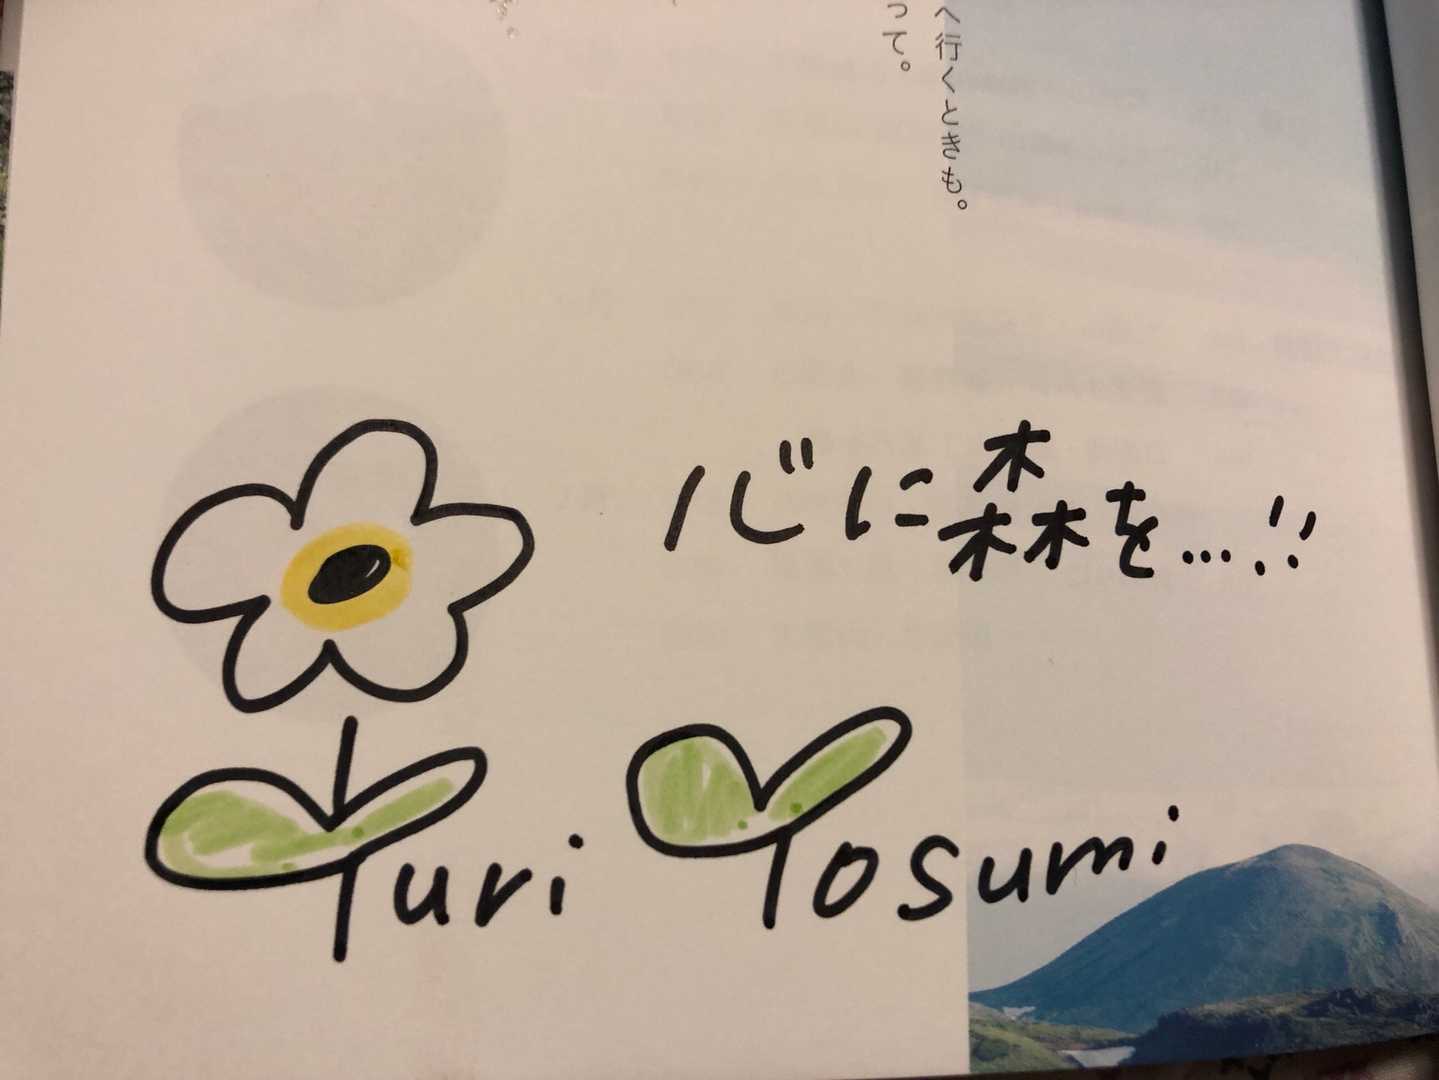 へ行くときも。
って。
心に森を…!!
Yuri Yosumi